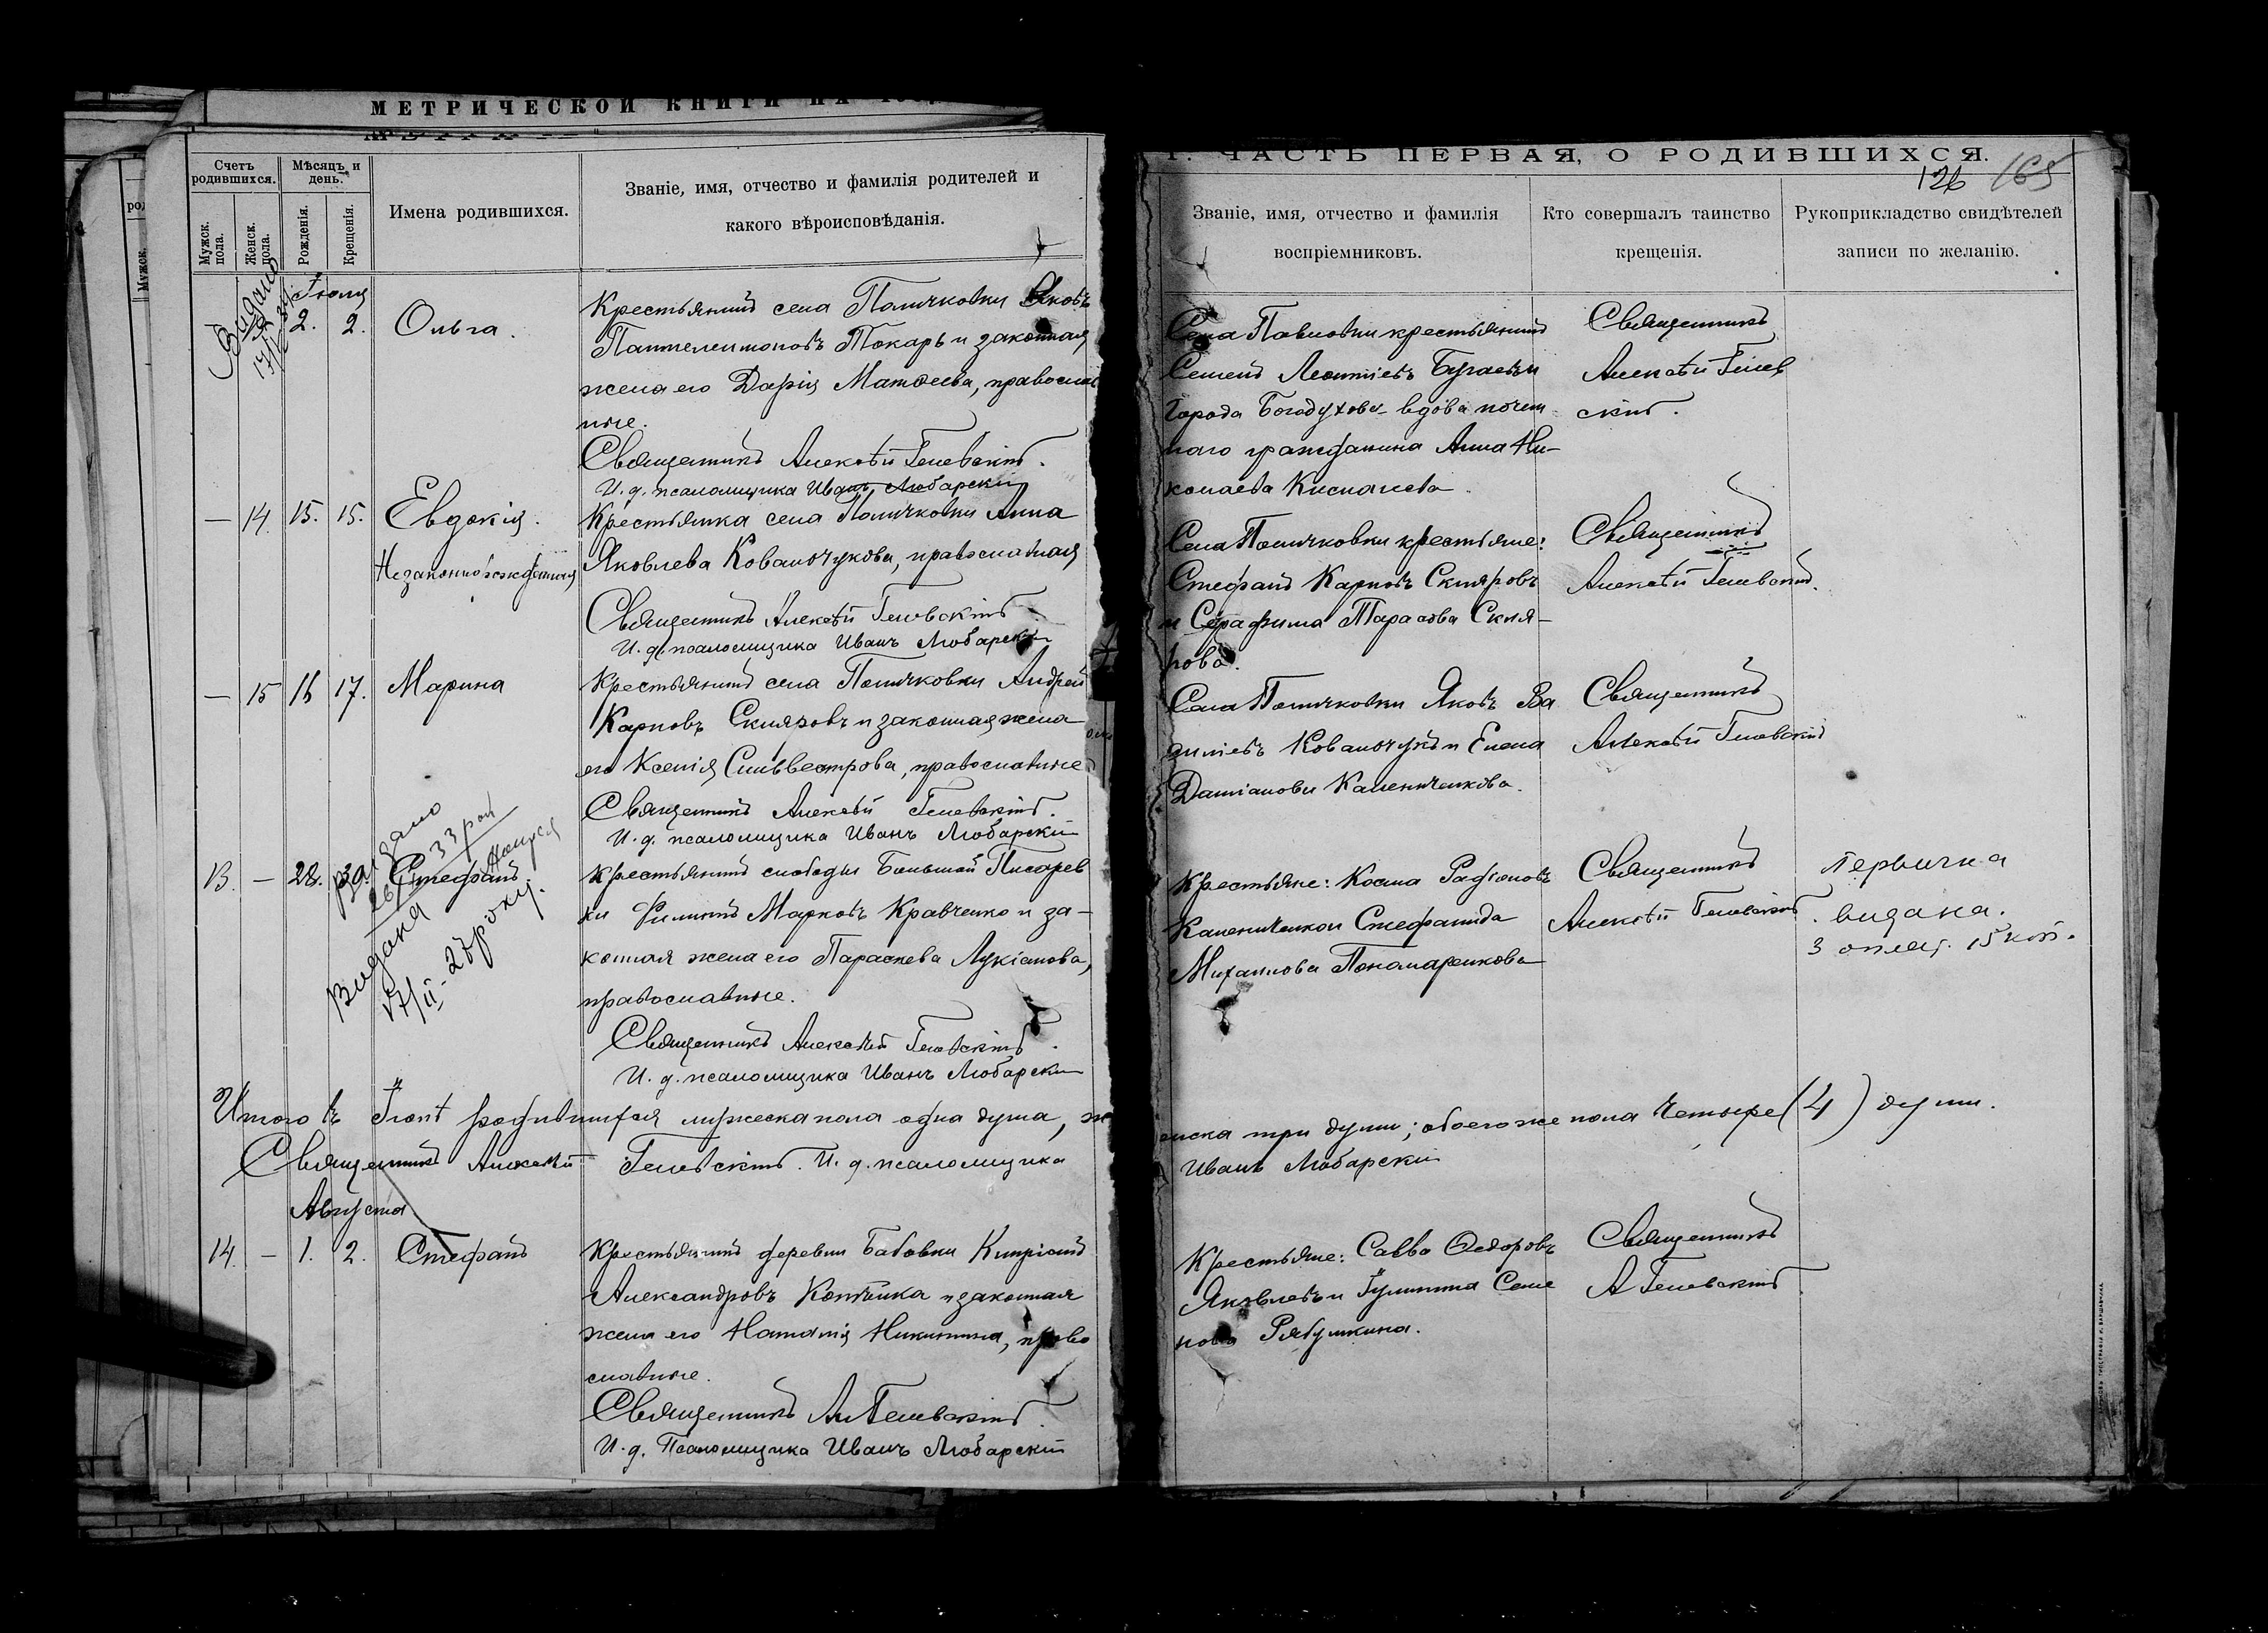 МЕТРИЧЕСКОЙ КНИГИ НА
Счетъ родившихся.
Мѣсяцъ и день.
Мужск. пола.
Женск. пола.
Рожденія.
Крещенія.
Имена родившихся.
Званіе, имя, отчество и фамилія родителей и
какого вѣроисповѣданія.
Видано
Іюля
2. 2. Ольга.
Крестьянинъ села Поличковки Яковъ
Пантелеимоновъ Токарь и законная
жена его Дарія Матѳеева, православ
ные.
Священникъ Алексѣй Гелевскій.
И. д. псаломщика Иванъ Любарскій
— 14. 15. 15. Евдокія.
Незаконнорожденная
Крестьянка села Поличковки Анна
Яковлева Ковальчукова, православная
Священникъ Алексѣй Гелевскій
И. д. псаломщика Иванъ Любарскій
— 15 16 17. Марина
Крестьянинъ села Поличковки Андрей
Карповъ Скляровъ и законная жена
его Ксенія Сильвестрова, православные
Священникъ Алексѣй Гелевскій.
И. д. псаломщика Иванъ Любарскій
Видано
33 рок
Видана
17/II - 27 року.
13. — 28. 30. Стефанъ
Крестьянинъ слободы Большой Писарев
ки Филиппъ Марковъ Кравченко и за-
конная жена его Параскева Лукіанова,
православные.
Священникъ Алексѣй Гелевскій.
И. д. псаломщика Иванъ Любарскій
Итого въ Іюлѣ родившихся мужеска пола одна душа, ж
Священникъ Алексѣй Гелевскій. И. д. псаломщика
Августа
14. — 1. 2. Стефанъ
Крестьянинъ деревни Бабовки Кипріанъ
Александровъ Котѣнка и законная
жена его Наталія Никитина, право
славные.
Священникъ Ал Гелевскій.
И. д. Псаломщика Иванъ Любарскій
ЧАСТЬ ПЕРВАЯ, О РОДИВШИХСЯ.
126 165
Званіе, имя, отчество и фамилія
воспріемниковъ.
Кто совершалъ таинство
крещенія.
Рукоприкладство свидѣтелей
записи по желанію.
Села Павловки крестьянинъ
Семенъ Леонтіевъ Бугаевъ и
города Богодухова вдова почет
наго гражданина Анна Ни-
колаева
Священникъ
Алексѣй Гелев
скій.
Села Поличковки крестьяне:
Стефанъ Карповъ Скляровъ
и Серафима Тарасова Скля-
рова.
Священникъ
Алексѣй Гелевскій.
Села Поличковки Яковъ Ва
силіевъ Ковальчукъ и Елена
Даміанова Калениченкова.
Священникъ
Алексѣй Гелевскій
Крестьяне: Косма
Калениченко и Стефанида
Михаилова Пономаренкова
Священникъ
Алексѣй Гелевскій.
первична
видана.
З оплат. 15 коп.
енска три души; обоего же пола четыре (4) души.
Иванъ Любарскій
Крестьяне: Савва Ѳедоровъ
Яковлевъ и Іулитта Семе
нова Рябушкина.
Священникъ
А Гелевскій.